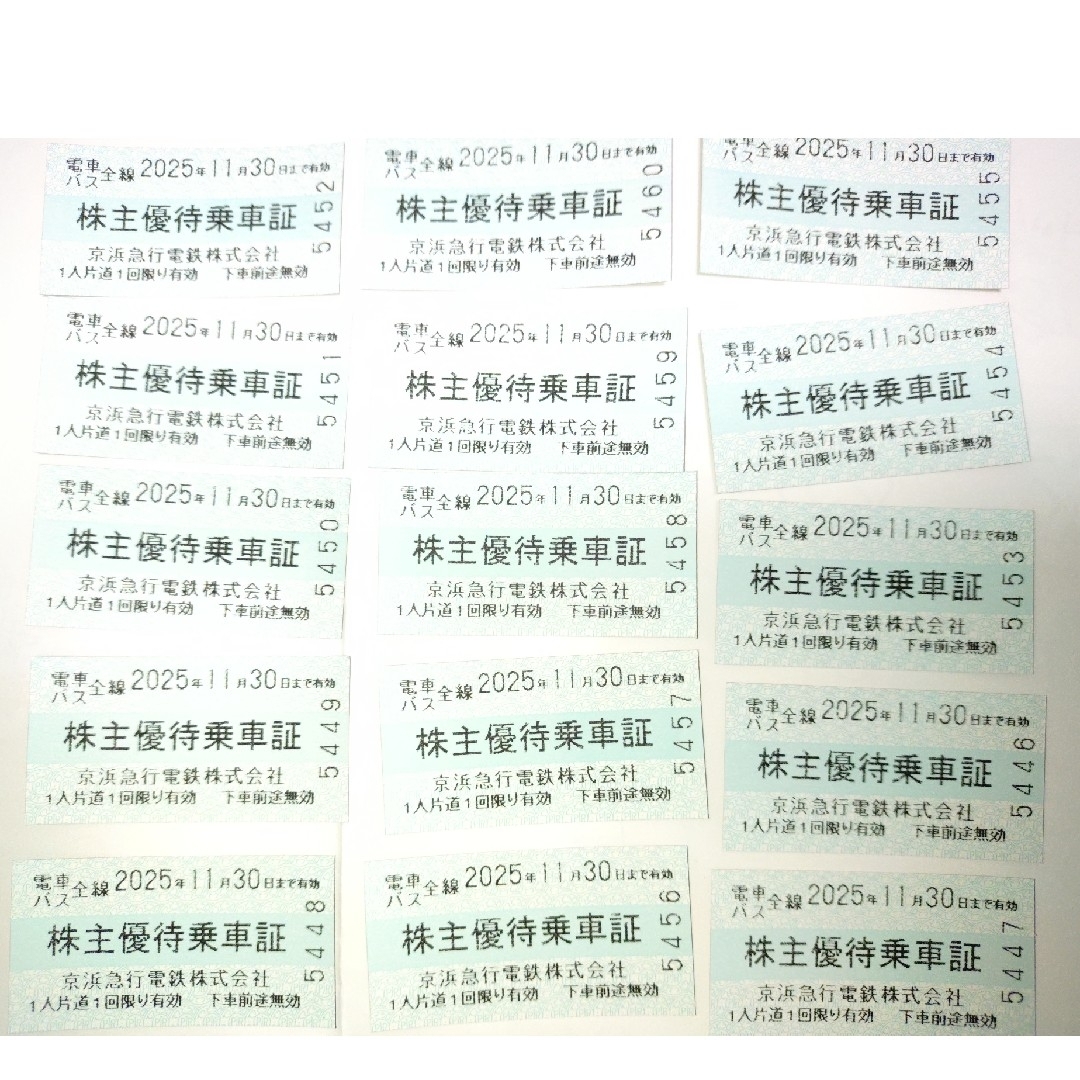 電車バス全線 2025年11月30日まで有効
株主優待乗車証
京浜急行電鉄株式会社
1人片道1回限り有効 下車前途無効
5452
電車バス全線 2025年11月30日まで有効
株主優待乗車証
京浜急行電鉄株式会社
1人片道1回限り有効 下車前途無効
5460
電車バス全線 2025年11月30日まで有効
株主優待乗車証
京浜急行電鉄株式会社
1人片道1回限り有効 下車前途無効
5455
電車バス全線 2025年11月30日まで有効
株主優待乗車証
京浜急行電鉄株式会社
1人片道1回限り有効 下車前途無効
5451
電車バス全線 2025年11月30日まで有効
株主優待乗車証
京浜急行電鉄株式会社
1人片道1回限り有効 下車前途無効
5459
電車バス全線 2025年11月30日まで有効
株主優待乗車証
京浜急行電鉄株式会社
1人片道1回限り有効 下車前途無効
5454
電車バス全線 2025年11月30日まで有効
株主優待乗車証
京浜急行電鉄株式会社
1人片道1回限り有効 下車前途無効
5450
電車バス全線 2025年11月30日まで有効
株主優待乗車証
京浜急行電鉄株式会社
1人片道1回限り有効 下車前途無効
5458
電車バス全線 2025年11月30日まで有効
株主優待乗車証
京浜急行電鉄株式会社
1人片道1回限り有効 下車前途無効
5453
電車バス全線 2025年11月30日まで有効
株主優待乗車証
京浜急行電鉄株式会社
1人片道1回限り有効 下車前途無効
5449
電車バス全線 2025年11月30日まで有効
株主優待乗車証
京浜急行電鉄株式会社
1人片道1回限り有効 下車前途無効
5457
電車バス全線 2025年11月30日まで有効
株主優待乗車証
京浜急行電鉄株式会社
1人片道1回限り有効 下車前途無効
5446
電車バス全線 2025年11月30日まで有効
株主優待乗車証
京浜急行電鉄株式会社
1人片道1回限り有効 下車前途無効
5448
電車バス全線 2025年11月30日まで有効
株主優待乗車証
京浜急行電鉄株式会社
1人片道1回限り有効 下車前途無効
5456
電車バス全線 2025年11月30日まで有効
株主優待乗車証
京浜急行電鉄株式会社
1人片道1回限り有効 下車前途無効
5447